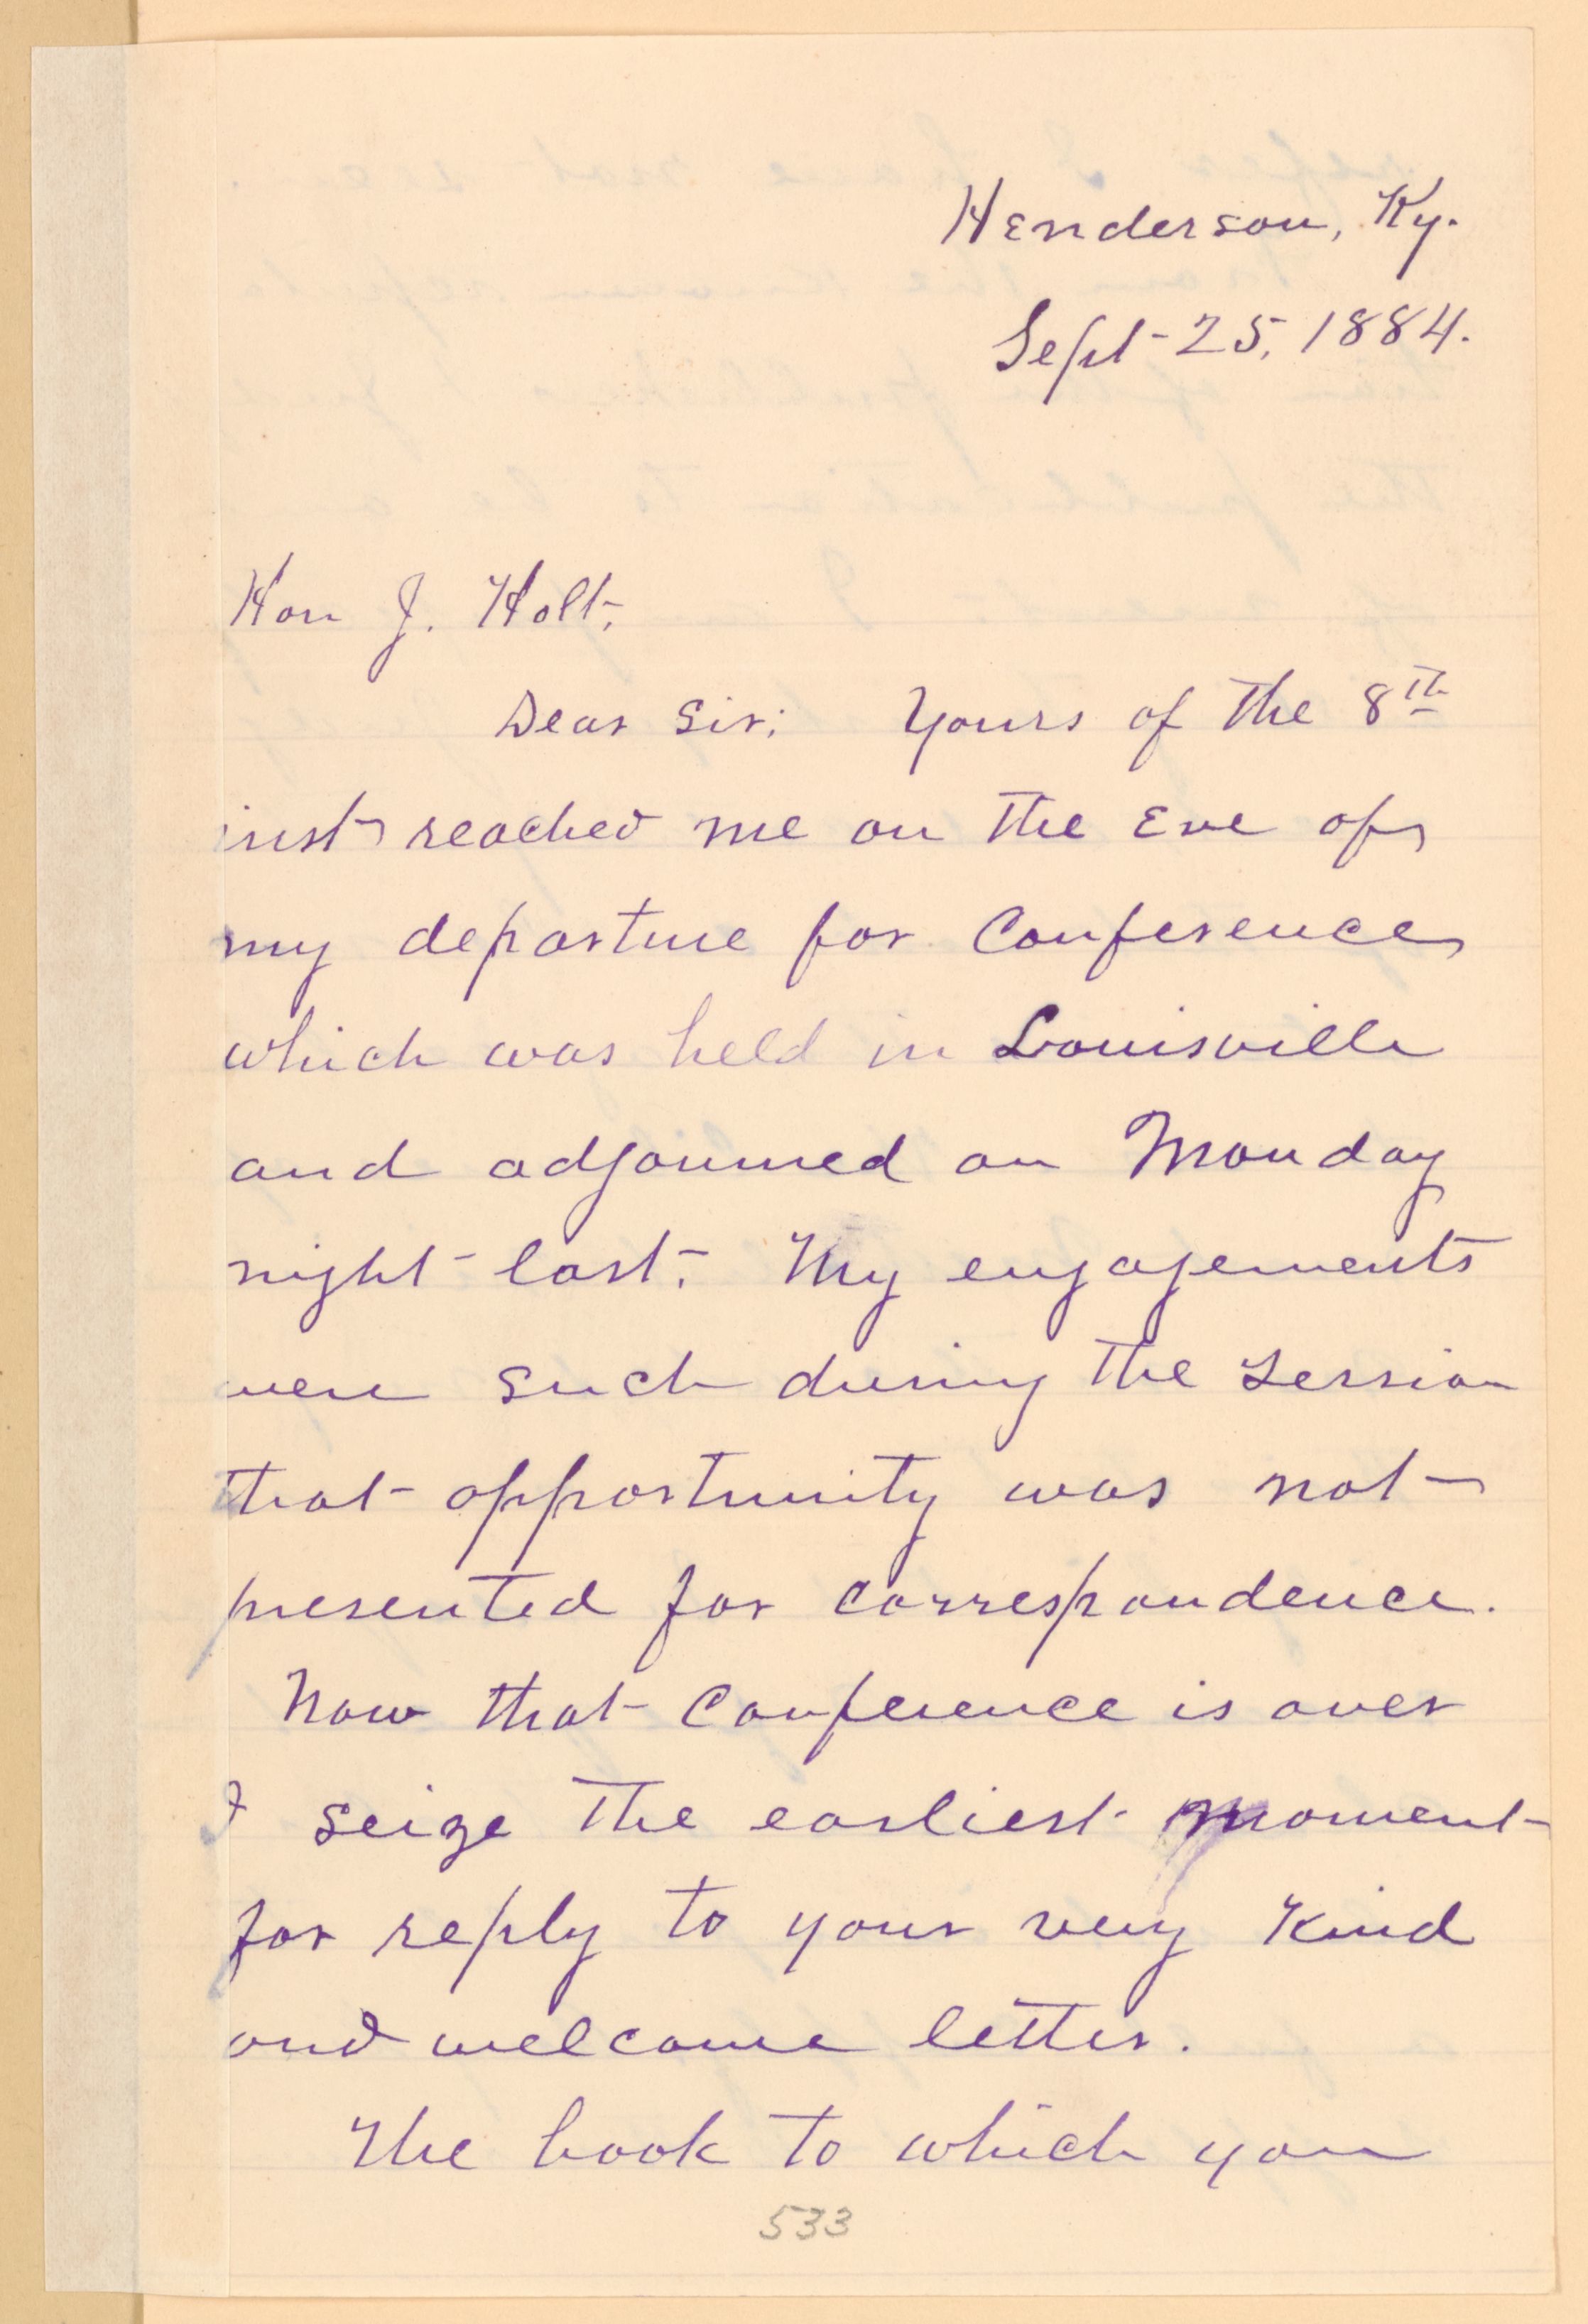 Henderson, Ky.
Sept 25, 1884.
Hon J. Holt,
Dear Sir: Yours of the 8th
inst reached me on the Eve of
my departure for Conference
which was held in Louisville
and adjourned on Monday
night last. My engagements
were such during the session
that opportunity was not
presented for correspondence.
Now that Conference is over
I seize the earliest moment
for reply to your very kind
and welcome letter.
The book to which you
533